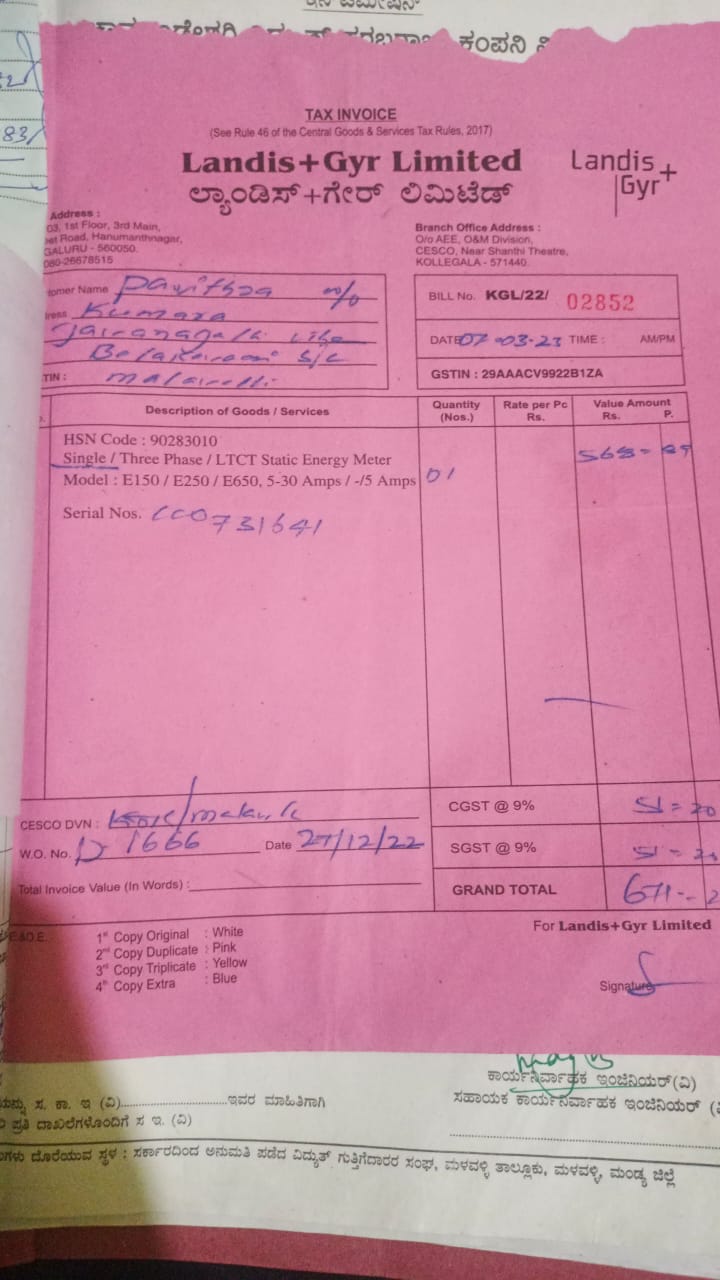 83/
ಕಂಪನಿ
TAX INVOICE
(See Rule 46 of the Central Goods & Services Tax Rules, 2017)
Landis+Gyr Limited
ಲ್ಯಾಂಡಿಸ್+ಗೇರ್ ಲಿಮಿಟೆಡ್
Landis+
Gyr
Address :
03, 1st Floor, 3rd Main,
Road, Hanumanthnagar,
GALURU - 560050.
080-26678515
Branch Office Address :
O/o AEE, O&M Division,
CESCO, Near Shanthi Theatre,
KOLLEGALA - 571440.
tomer Name Pavithra w/o
ress Kumara
TIN :
BILL No. KGL/22/ 02852
DATE 07-03-23 TIME : AM/PM
GSTIN : 29AAACV9922B1ZA
Description of Goods / Services
Quantity (Nos.)
Rate per Pc Rs.
Value Amount Rs. P.
HSN Code : 90283010
Single / Three Phase / LTCT Static Energy Meter
Model : E150 / E250 / E650, 5-30 Amps / -/5 Amps 01
Serial Nos. CC0731641
CESCO DVN :
W.O. No. D 1666 Date 27/12/22
Total Invoice Value (In Words) :
CGST @ 9% 51=20
SGST @ 9% 51=20
GRAND TOTAL 671-
E&O.E.
1st Copy Original : White
2nd Copy Duplicate : Pink
3rd Copy Triplicate : Yellow
4th Copy Extra : Blue
For Landis+Gyr Limited
Signature
ಕಾರ್ಯನಿರ್ವಾಹಕ ಇಂಜಿನಿಯರ್(ವಿ)
ಸ. ಕಾ. ಇ (ವಿ)..............................ಇವರ ಮಾಹಿತಿಗಾಗಿ
ಸಹಾಯಕ ಕಾರ್ಯನಿರ್ವಾಹಕ ಇಂಜಿನಿಯರ್
ಪ್ರತಿ ದಾಖಲೆಗಳೊಂದಿಗೆ ಸ ಇ. (ವಿ)
ದೊರೆಯುವ ಸ್ಥಳ : ಸರ್ಕಾರದಿಂದ ಅನುಮತಿ ಪಡೆದ ವಿದ್ಯುತ್ ಗುತ್ತಿಗೆದಾರರ ಸಂಘ, ಮಳವಳ್ಳಿ ತಾಲ್ಲೂಕು, ಮಳವಳ್ಳಿ, ಮಂಡ್ಯ ಜಿಲ್ಲೆ